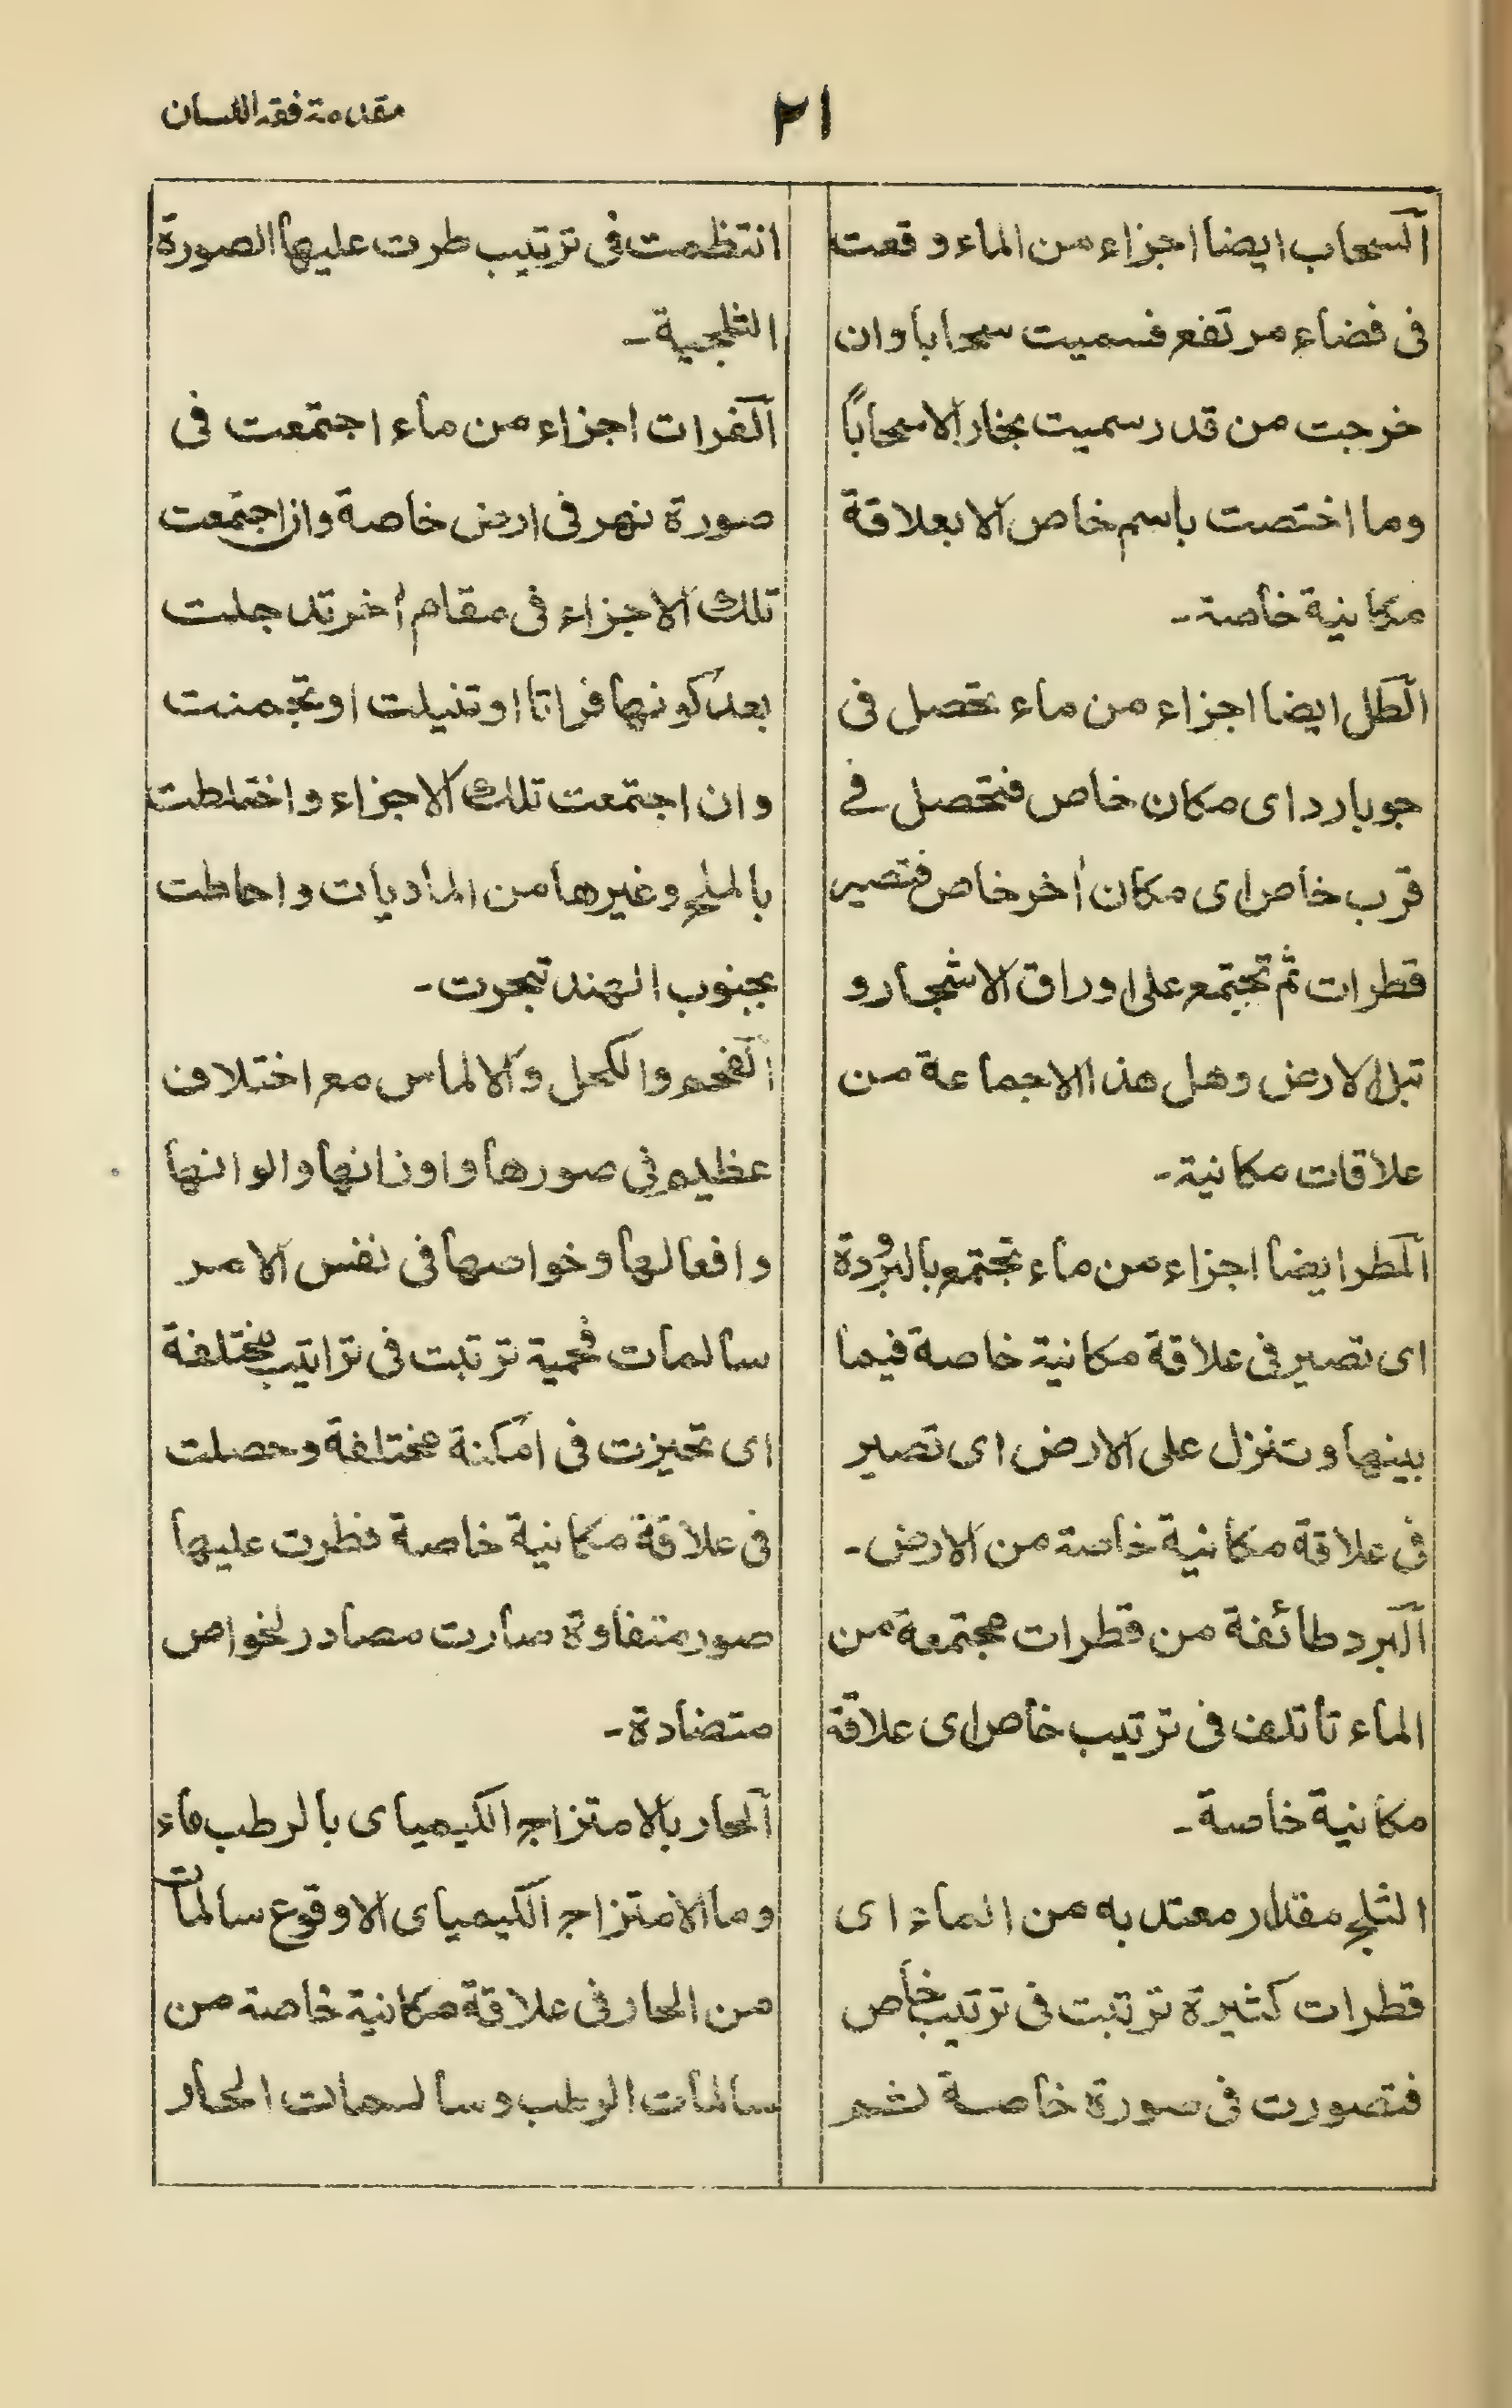 مقدمة فقه اللسان
٢١
السحاب ايضا اجزاء من الماء وقعت
فى فضاء مرتفع فسميت سحابا وان
خرجت من قدر سميت بخارا لا سحاباً
وما اختصت باسم خاص الا بعلاقة
مكانية خاصة-
الطل ايضا اجزاء من ماء تحصل فى
جو بارد اى مكان خاص فتحصل فے
قرب خاص اى مكان أخر خاص فتصير
قطرات ثم تجتمع على اوراق الاشجار و
تبل الارض وهل هذا الاجماعة من
علاقات مكانية-
المطر ايضا اجزاء من ماء تجتمع بالبُرُدة
اى تصير فى علاقة مكانية خاصة فيما
بينها وتنزل على الارض اى تصير
فى علاقة مكانية خاصة من الارض-
البرد طائفة من قطرات مجتمعة من
الماء تأتلف فى ترتيب خاص اى علاقة
مكانية خاصة-
الثلج مقدار معتد به من الماء اى
قطرات كثيرة ترتبت فى ترتيب خاص
فتصورت فى صورة خاصة ثم
انتظمت فى ترتيب طرت عليها الصورة
الثلجية-
الفرات اجزاء من ماء اجتمعت فى
صورة نهر فى ارض خاصة وان اجتمعت
تلك الاجزاء فى مقام أخر تدجلت
بعد كونها فراتا او تنيلت او تجمنت
وان اجتمعت تلك الاجزاء واختلطت
بالملح وغيرها من الماديات واحاطت
بجنوب الهند تبحرت-
الفحم والكحل والالماس مع اختلاف
عظيم فى صورها واوزانها والوانها
وافعالها وخواصها فى نفس الامر
سالمات فحمية ترتبت فى تراتيب مختلفة
اى تحيزت فى امكنة مختلفة وحصلت
فى علاقة مكانية خاصة فطرت عليها
صور متفاوة صارت مصادر لخواص
متضادة-
الحار بالامتزاج الكيمياى بالرطب ماء
وما الامتزاج الكيمياى الا وقوع سالمات
من الحار فى علاقة مكانية خاصة من
سالمات الرطب وسالمات الحار